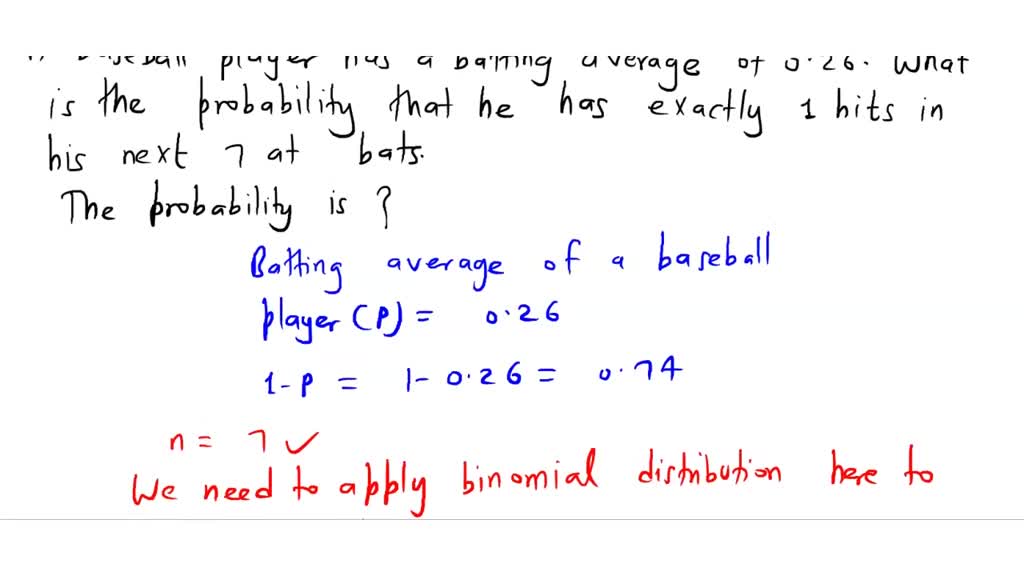 baseball player has a batting average of 0.26. What
is the probability that he has exactly 1 hits in
his next 7 at bats.
The probability is ?
Batting average of a baseball
player (P) = 0.26
1-P = 1-0.26 = 0.74
n = 7 ✓
We need to apply binomial distribution here to